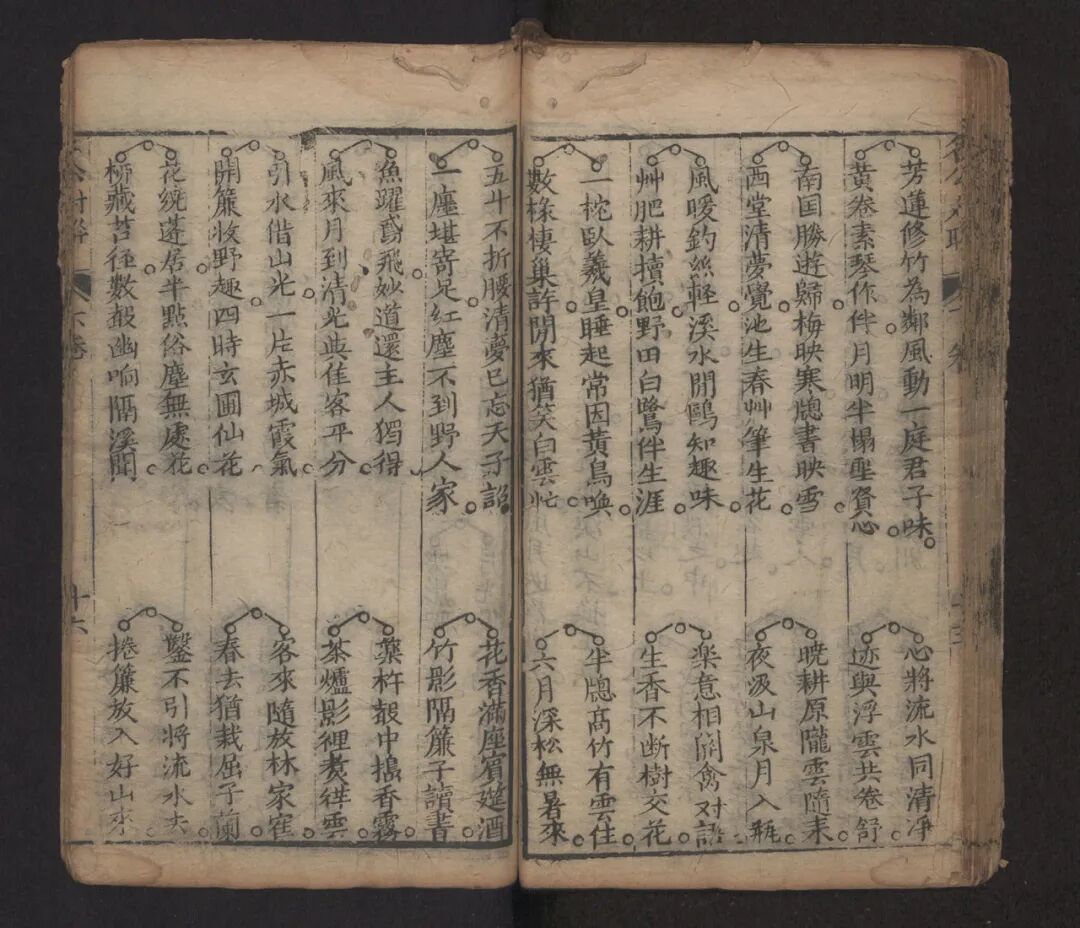 芳蓮修竹為鄰風動一庭君子味
黃卷素琴作伴月明半榻聖賢心
南国勝遊歸梅映寒牕書映雪
西堂清夢覺池生春艸筆生花
風暖釣絲輕溪水閒鷗知趣味
艸肥耕犢飽野田白鷺伴生涯
一枕臥羲皇睡起常因黃鳥喚
數椽棲巢許閒來猶笑白雲忙
心將流水同清凈
迹與浮雲共卷舒
曉耕原隴雲隨耒
夜汲山泉月入瓶
楽意相関禽对語
生香不断樹交花
半牕高竹有雲住
六月深松無暑來
五斗不折腰清夢已忘天子詔
一廛堪寄足紅塵不到野人家
魚躍鳶飛妙道還主人獨得
風來月到清光與佳客平分
引水借山光一片赤城霞氣
開簾收野趣四時玄圃仙花
花繞蓬居半點俗塵無處花
橋藏苔徑數聲幽响隔溪聞
花香滿座賓筵酒
竹影隔簾子讀書
藥杵聲中搗香霧
茶爐影裡煮祥雲
客來隨放林家
春去猶栽屈子蘭
鑿不引將流水去
捲簾放入好山來
六卷
十六